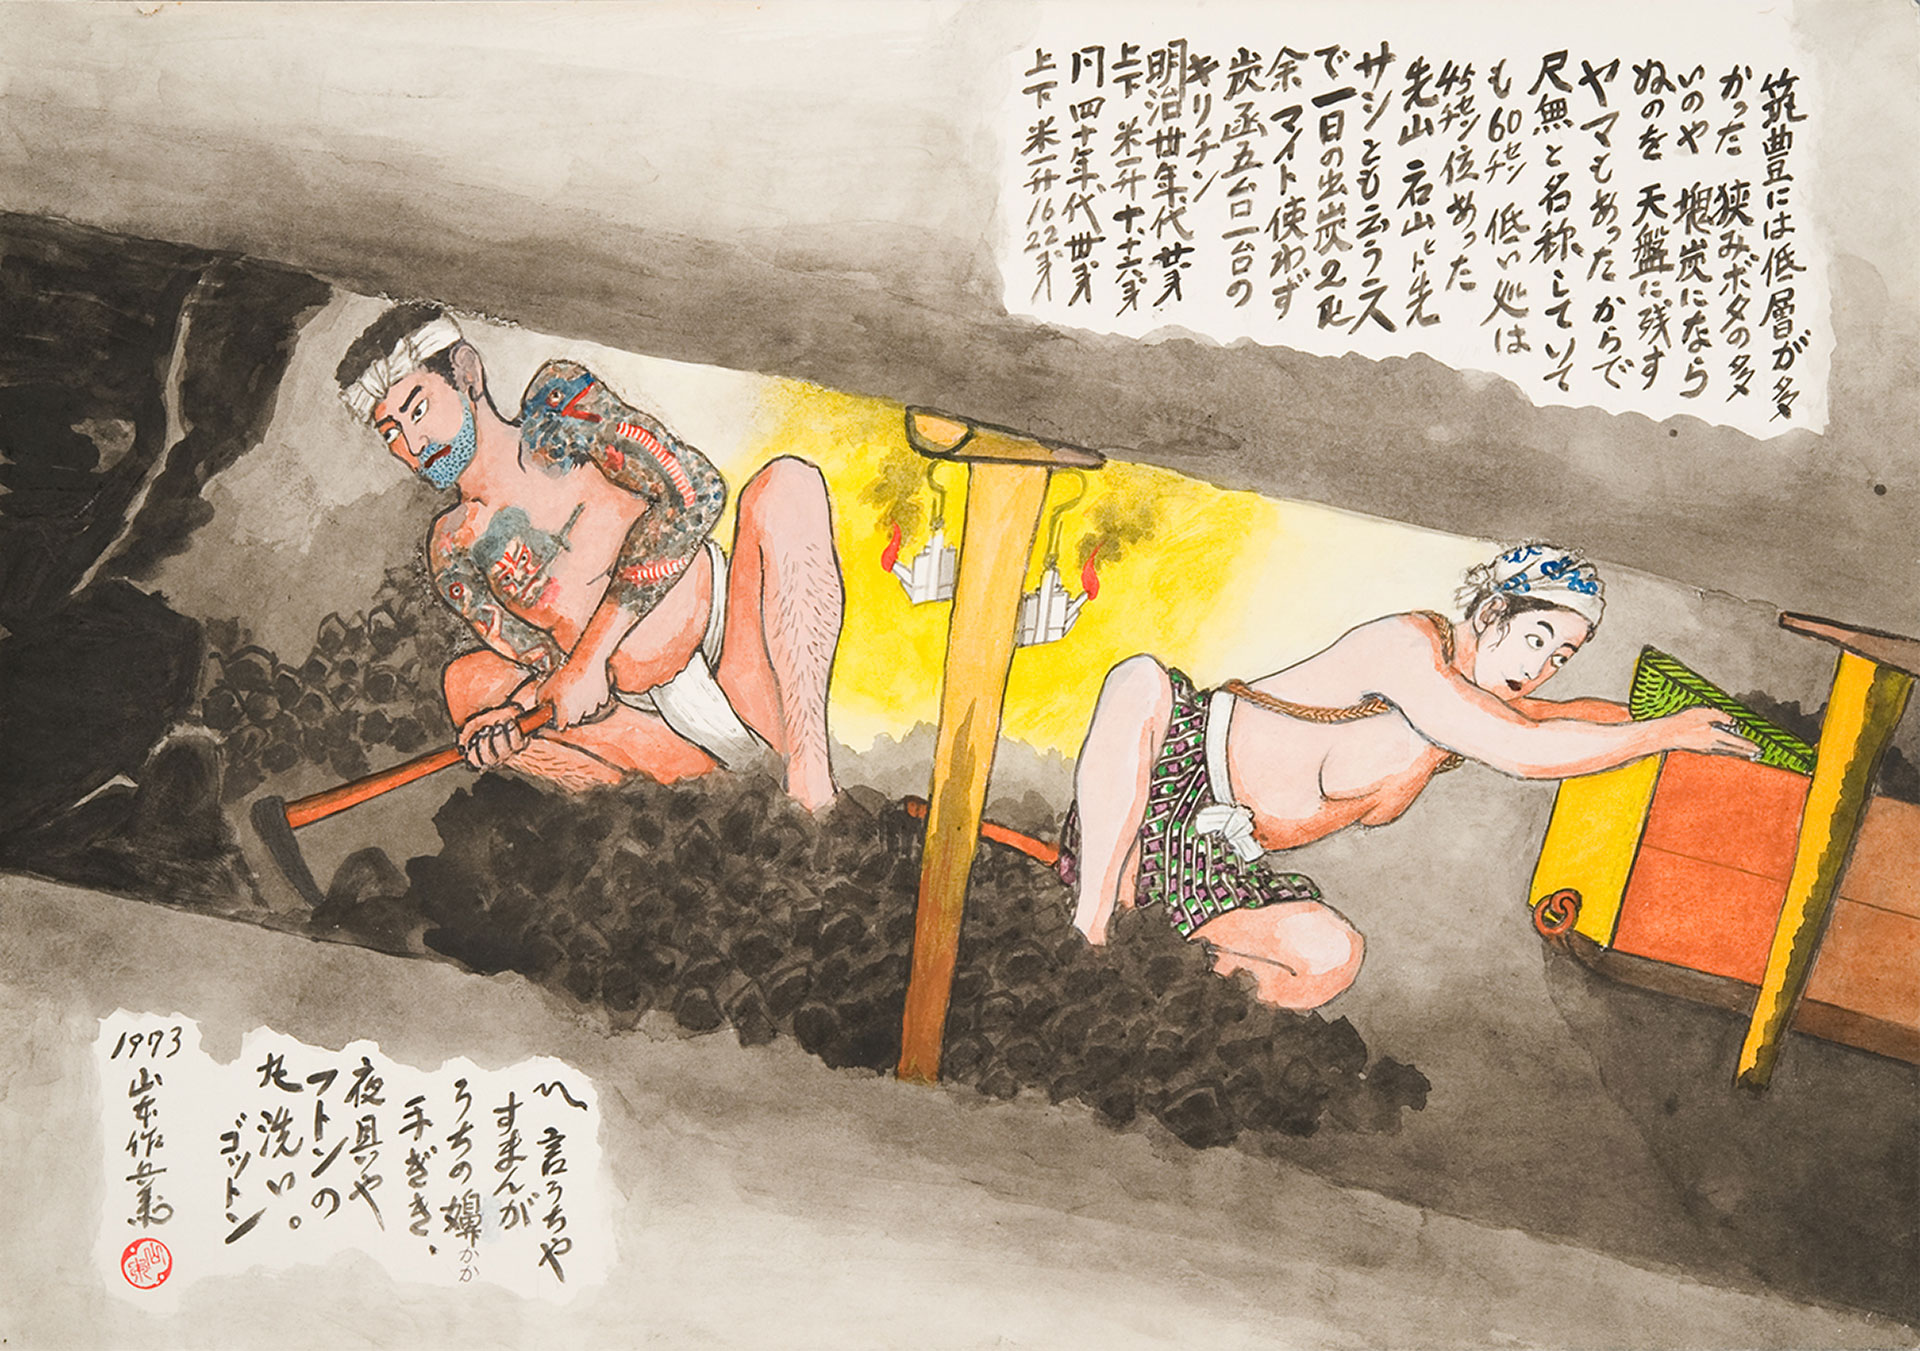 筑豊には低層が多
かった 狭みボタの多
いのや 塊炭になら
ぬのを 天盤に残す
ヤマもあったからで
尺無と名称していて
も60センチ 低い処は
45センチ位あった
先山 石山ト先
サシとも云う二人
で一日の出炭2屯
余 マイト使わず
炭函五台一台の
キリチン
明治卅年代 廿戋
上下 米一升十、十六戋
四十年代 卅戋
上下 米一升16 22戋
〽言うちゃ
すまんが
うちの嬶かか
手ぎき、
夜具や
フトンの
丸洗い。
ゴットン
1973 山本作兵衛
山本